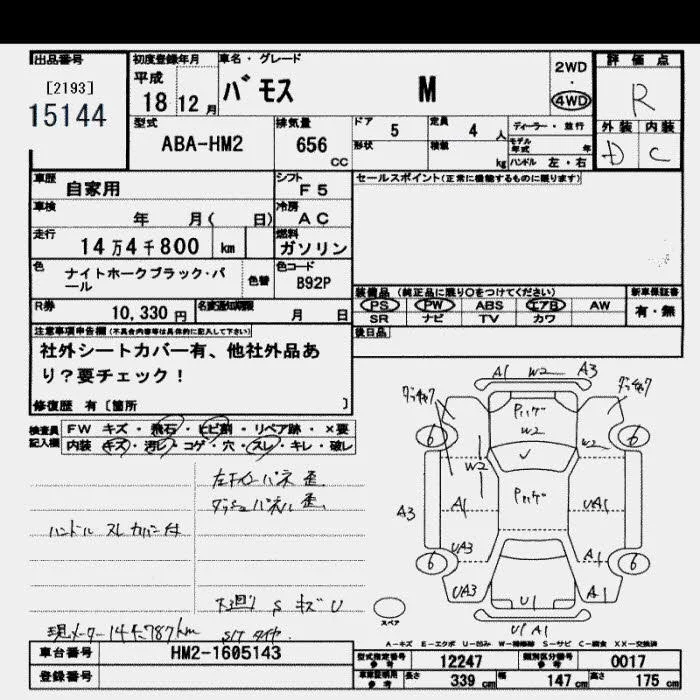 出品番号
[2193]
15144
初度登録年月
平成
18 12 月
車名・グレード
バモス M
2WD
・
4WD
評価点
R
外装 内装
D C
型式
ABA-HM2
排気量
656
CC
ドア
5
定員
4 人
ディーラー・並行
形状
積載
kg
モデル年式
年
ハンドル 左・右
車歴
自家用
シフト
F5
セールスポイント(正常に機能するものに限ります)
車検
年 月( 日)
冷房
AC
走行
14万4千800 km
燃料
ガソリン
色
ナイトホークブラック・パ
ール
色替
色コード
B92P
装備品 (純正品に限り○をつけてください)
PS PW ABS エアB AW
SR ナビ TV カワ
新車保証書
有・無
R券
10,330 円
名変通知期限
月 日
後日品
注意事項申告欄(不具合内容等は具体的に記入して下さい)
社外シートカバー有、他社外品あ
り?要チェック!
修復歴 有〔箇所 〕
検査員
記入欄
FW キズ・飛石・ヒビ割・リペア跡・×要
内装 キズ・汚レ・コゲ・穴・スレ・キレ・破レ
ハンドル スレ カバー付
下廻り S キズ U
現メーター144,787km
S/T タイヤ
A1 W2 A3
W2
6 6
W2
W2
A3
A1
UA1
UA3
A1
6 6
UA3
A1
U1
U1 A1
スペア
A-キズ E-エクボ U-凹み W-補修跡 S-サビ C-腐食 XX-交換済
車台番号
HM2-1605143
登録番号
型式指定番号
参考
12247
類別区分番号
参考
0017
車庫証明用
参考
長さ
339 cm
幅
147 cm
高さ
175 cm